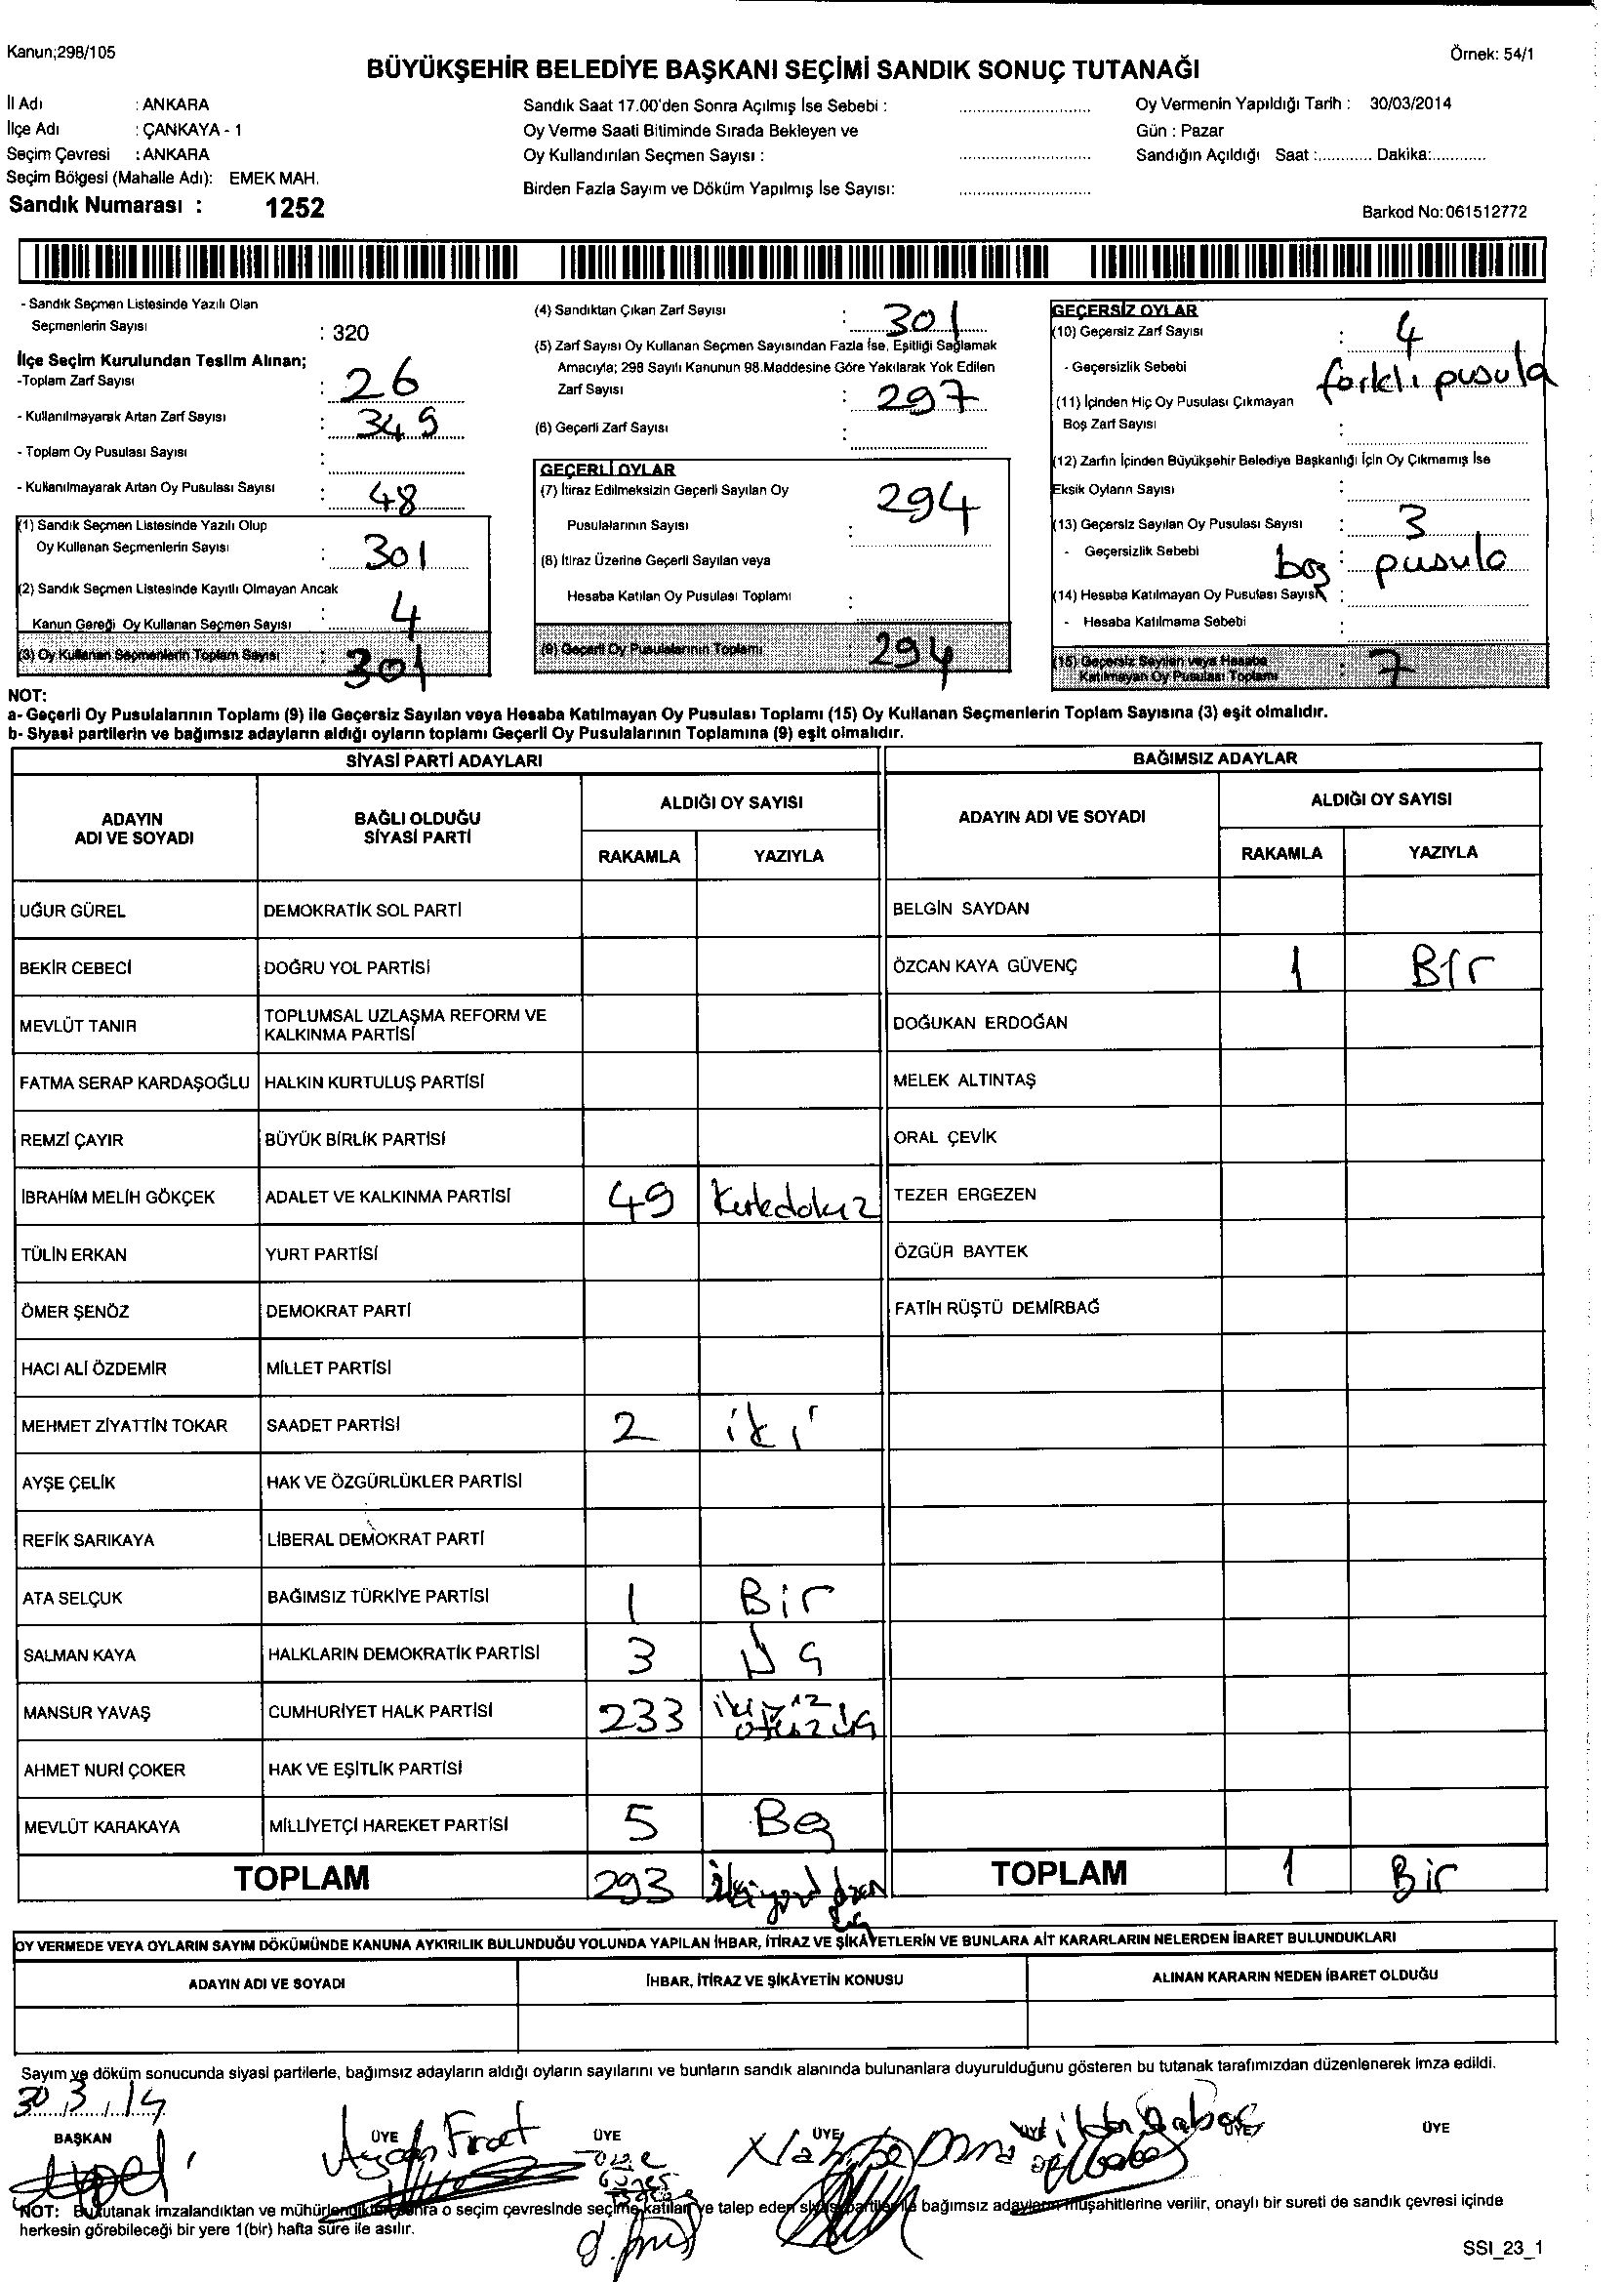 Kanun;298/105
Örnek: 54/1
BÜYÜKŞEHİR BELEDİYE BAŞKANI SEÇİMİ SANDIK SONUÇ TUTANAĞI
İl Adı : ANKARA
İlçe Adı : ÇANKAYA - 1
Seçim Çevresi : ANKARA
Seçim Bölgesi (Mahalle Adı): EMEK MAH.
Sandık Numarası : 1252
Sandık Saat 17.00'den Sonra Açılmış İse Sebebi :
Oy Verme Saati Bitiminde Sırada Bekleyen ve
Oy Kullandırılan Seçmen Sayısı :
Birden Fazla Sayım ve Döküm Yapılmış İse Sayısı:
Oy Vermenin Yapıldığı Tarih : 30/03/2014
Gün : Pazar
Sandığın Açıldığı Saat :............ Dakika:...........
Barkod No:061512772
- Sandık Seçmen Listesinde Yazılı Olan
Seçmenlerin Sayısı : 320
İlçe Seçim Kurulundan Teslim Alınan;
-Toplam Zarf Sayısı : 26
- Kullanılmayarak Artan Zarf Sayısı : 349
- Toplam Oy Pusulası Sayısı :
- Kullanılmayarak Artan Oy Pusulası Sayısı : 48
(1) Sandık Seçmen Listesinde Yazılı Olup
Oy Kullanan Seçmenlerin Sayısı : 301
(2) Sandık Seçmen Listesinde Kayıtlı Olmayan Ancak
Kanun Gereği Oy Kullanan Seçmen Sayısı : 4
(3) Oy Kullanan Seçmenlerin Toplam Sayısı : 301
(4) Sandıktan Çıkan Zarf Sayısı : 301
(5) Zarf Sayısı Oy Kullanan Seçmen Sayısından Fazla İse, Eşitliği Sağlamak
Amacıyla; 298 Sayılı Kanunun 98.Maddesine Göre Yakılarak Yok Edilen
Zarf Sayısı : 297
(6) Geçerli Zarf Sayısı :
GEÇERLİ OYLAR
(7) İtiraz Edilmeksizin Geçerli Sayılan Oy
Pusulalarının Sayısı : 294
(8) İtiraz Üzerine Geçerli Sayılan veya
Hesaba Katılan Oy Pusulası Toplamı :
(9) Geçerli Oy Pusulalarının Toplamı : 294
GEÇERSİZ OYLAR
(10) Geçersiz Zarf Sayısı : 4
- Geçersizlik Sebebi : farklı pusula
(11) İçinden Hiç Oy Pusulası Çıkmayan
Boş Zarf Sayısı :
(12) Zarfın İçinden Büyükşehir Belediye Başkanlığı İçin Oy Çıkmamış İse
Eksik Oyların Sayısı :
(13) Geçersiz Sayılan Oy Pusulası Sayısı : 3
- Geçersizlik Sebebi : boş pusula
(14) Hesaba Katılmayan Oy Pusulası Sayısı :
- Hesaba Katılmama Sebebi :
(15) Geçersiz Sayılan veya Hesaba
Katılmayan Oy Pusulası Toplamı : 7
NOT:
a- Geçerli Oy Pusulalarının Toplamı (9) ile Geçersiz Sayılan veya Hesaba Katılmayan Oy Pusulası Toplamı (15) Oy Kullanan Seçmenlerin Toplam Sayısına (3) eşit olmalıdır.
b- Siyasi partilerin ve bağımsız adayların aldığı oyların toplamı Geçerli Oy Pusulalarının Toplamına (9) eşit olmalıdır.
SİYASİ PARTİ ADAYLARI
ADAYIN ADI VE SOYADI
BAĞLI OLDUĞU SİYASİ PARTİ
ALDIĞI OY SAYISI
RAKAMLA YAZIYLA
UĞUR GÜREL DEMOKRATİK SOL PARTİ
BEKİR CEBECİ DOĞRU YOL PARTİSİ
MEVLÜT TANIR TOPLUMSAL UZLAŞMA REFORM VE KALKINMA PARTİSİ
FATMA SERAP KARDAŞOĞLU HALKIN KURTULUŞ PARTİSİ
REMZİ ÇAYIR BÜYÜK BİRLİK PARTİSİ
İBRAHİM MELİH GÖKÇEK ADALET VE KALKINMA PARTİSİ 49 Kırkdokuz
TÜLİN ERKAN YURT PARTİSİ
ÖMER ŞENÖZ DEMOKRAT PARTİ
HACI ALİ ÖZDEMİR MİLLET PARTİSİ
MEHMET ZİYATTİN TOKAR SAADET PARTİSİ 2 iki
AYŞE ÇELİK HAK VE ÖZGÜRLÜKLER PARTİSİ
REFİK SARIKAYA LİBERAL DEMOKRAT PARTİ
ATA SELÇUK BAĞIMSIZ TÜRKİYE PARTİSİ 1 Bir
SALMAN KAYA HALKLARIN DEMOKRATİK PARTİSİ 3 Üç
MANSUR YAVAŞ CUMHURİYET HALK PARTİSİ 233 ikiyüz otuzüç
AHMET NURİ ÇOKER HAK VE EŞİTLİK PARTİSİ
MEVLÜT KARAKAYA MİLLİYETÇİ HAREKET PARTİSİ 5 Beş
TOPLAM 293
BAĞIMSIZ ADAYLAR
ADAYIN ADI VE SOYADI
ALDIĞI OY SAYISI
RAKAMLA YAZIYLA
BELGİN SAYDAN
ÖZCAN KAYA GÜVENÇ 1 Bir
DOĞUKAN ERDOĞAN
MELEK ALTINTAŞ
ORAL ÇEVİK
TEZER ERGEZEN
ÖZGÜR BAYTEK
FATİH RÜŞTÜ DEMİRBAĞ
TOPLAM 1 Bir
OY VERMEDE VEYA OYLARIN SAYIM DÖKÜMÜNDE KANUNA AYKIRILIK BULUNDUĞU YOLUNDA YAPILAN İHBAR, İTİRAZ VE ŞİKÂYETLERİN VE BUNLARA AİT KARARLARIN NELERDEN İBARET BULUNDUKLARI
ADAYIN ADI VE SOYADI İHBAR, İTİRAZ VE ŞİKÂYETİN KONUSU ALINAN KARARIN NEDEN İBARET OLDUĞU
Sayım ve döküm sonucunda siyasi partilerle, bağımsız adayların aldığı oyların sayılarını ve bunların sandık alanında bulunanlara duyurulduğunu gösteren bu tutanak tarafımızdan düzenlenerek imza edildi.
30.3.14
BAŞKAN ÜYE ÜYE ÜYE ÜYE ÜYE ÜYE
NOT: Bu tutanak imzalandıktan ve mühürlendikten sonra o seçim çevresinde seçime katılan ve talep eden siyasi partiler ile bağımsız adayların müşahitlerine verilir, onaylı bir sureti de sandık çevresi içinde
herkesin görebileceği bir yere 1(bir) hafta süre ile asılır.
SSI_23_1